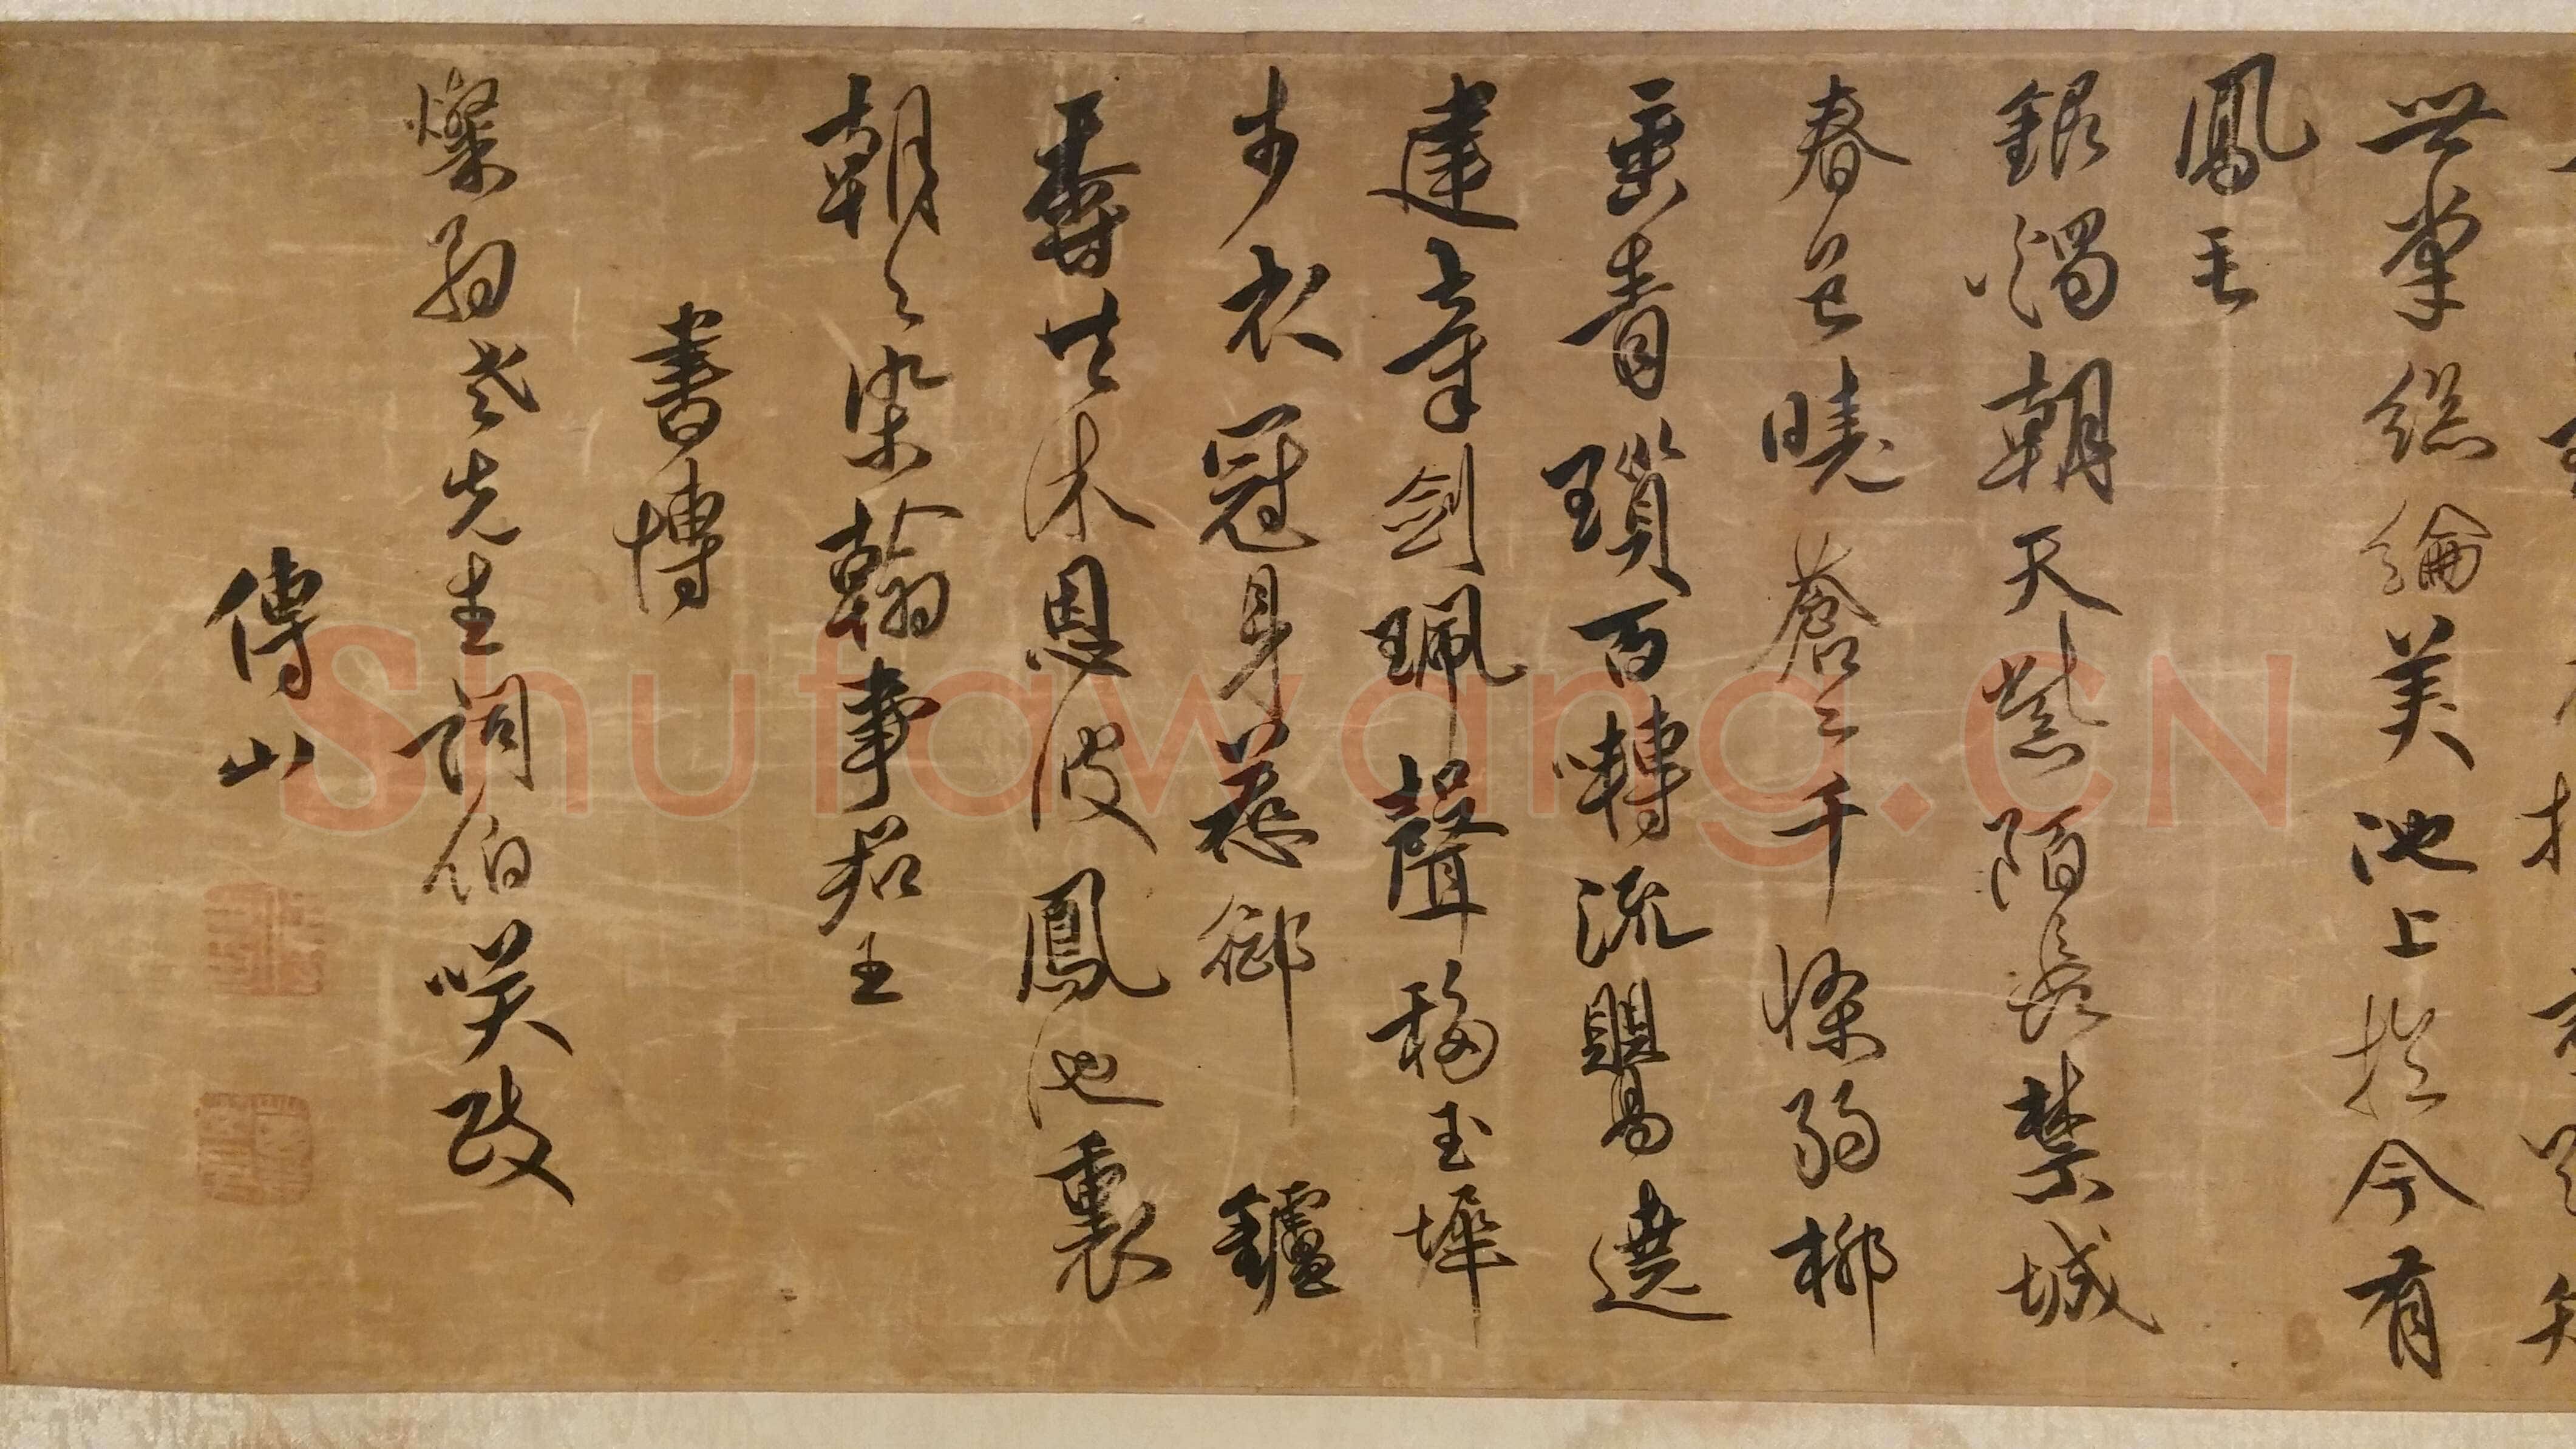 世掌絲綸美池上於今有
鳳毛
銀燭朝天紫陌長禁城
春色曉蒼〻千條弱柳
垂青瑣百囀流鶯遶
建章劍珮聲移玉墀
步衣冠身惹御鑪
香共沐恩波鳳池裏
朝〻染翰事君王
書博
燦翁老先生詞伯咲政
傅山
Shufawang.CN